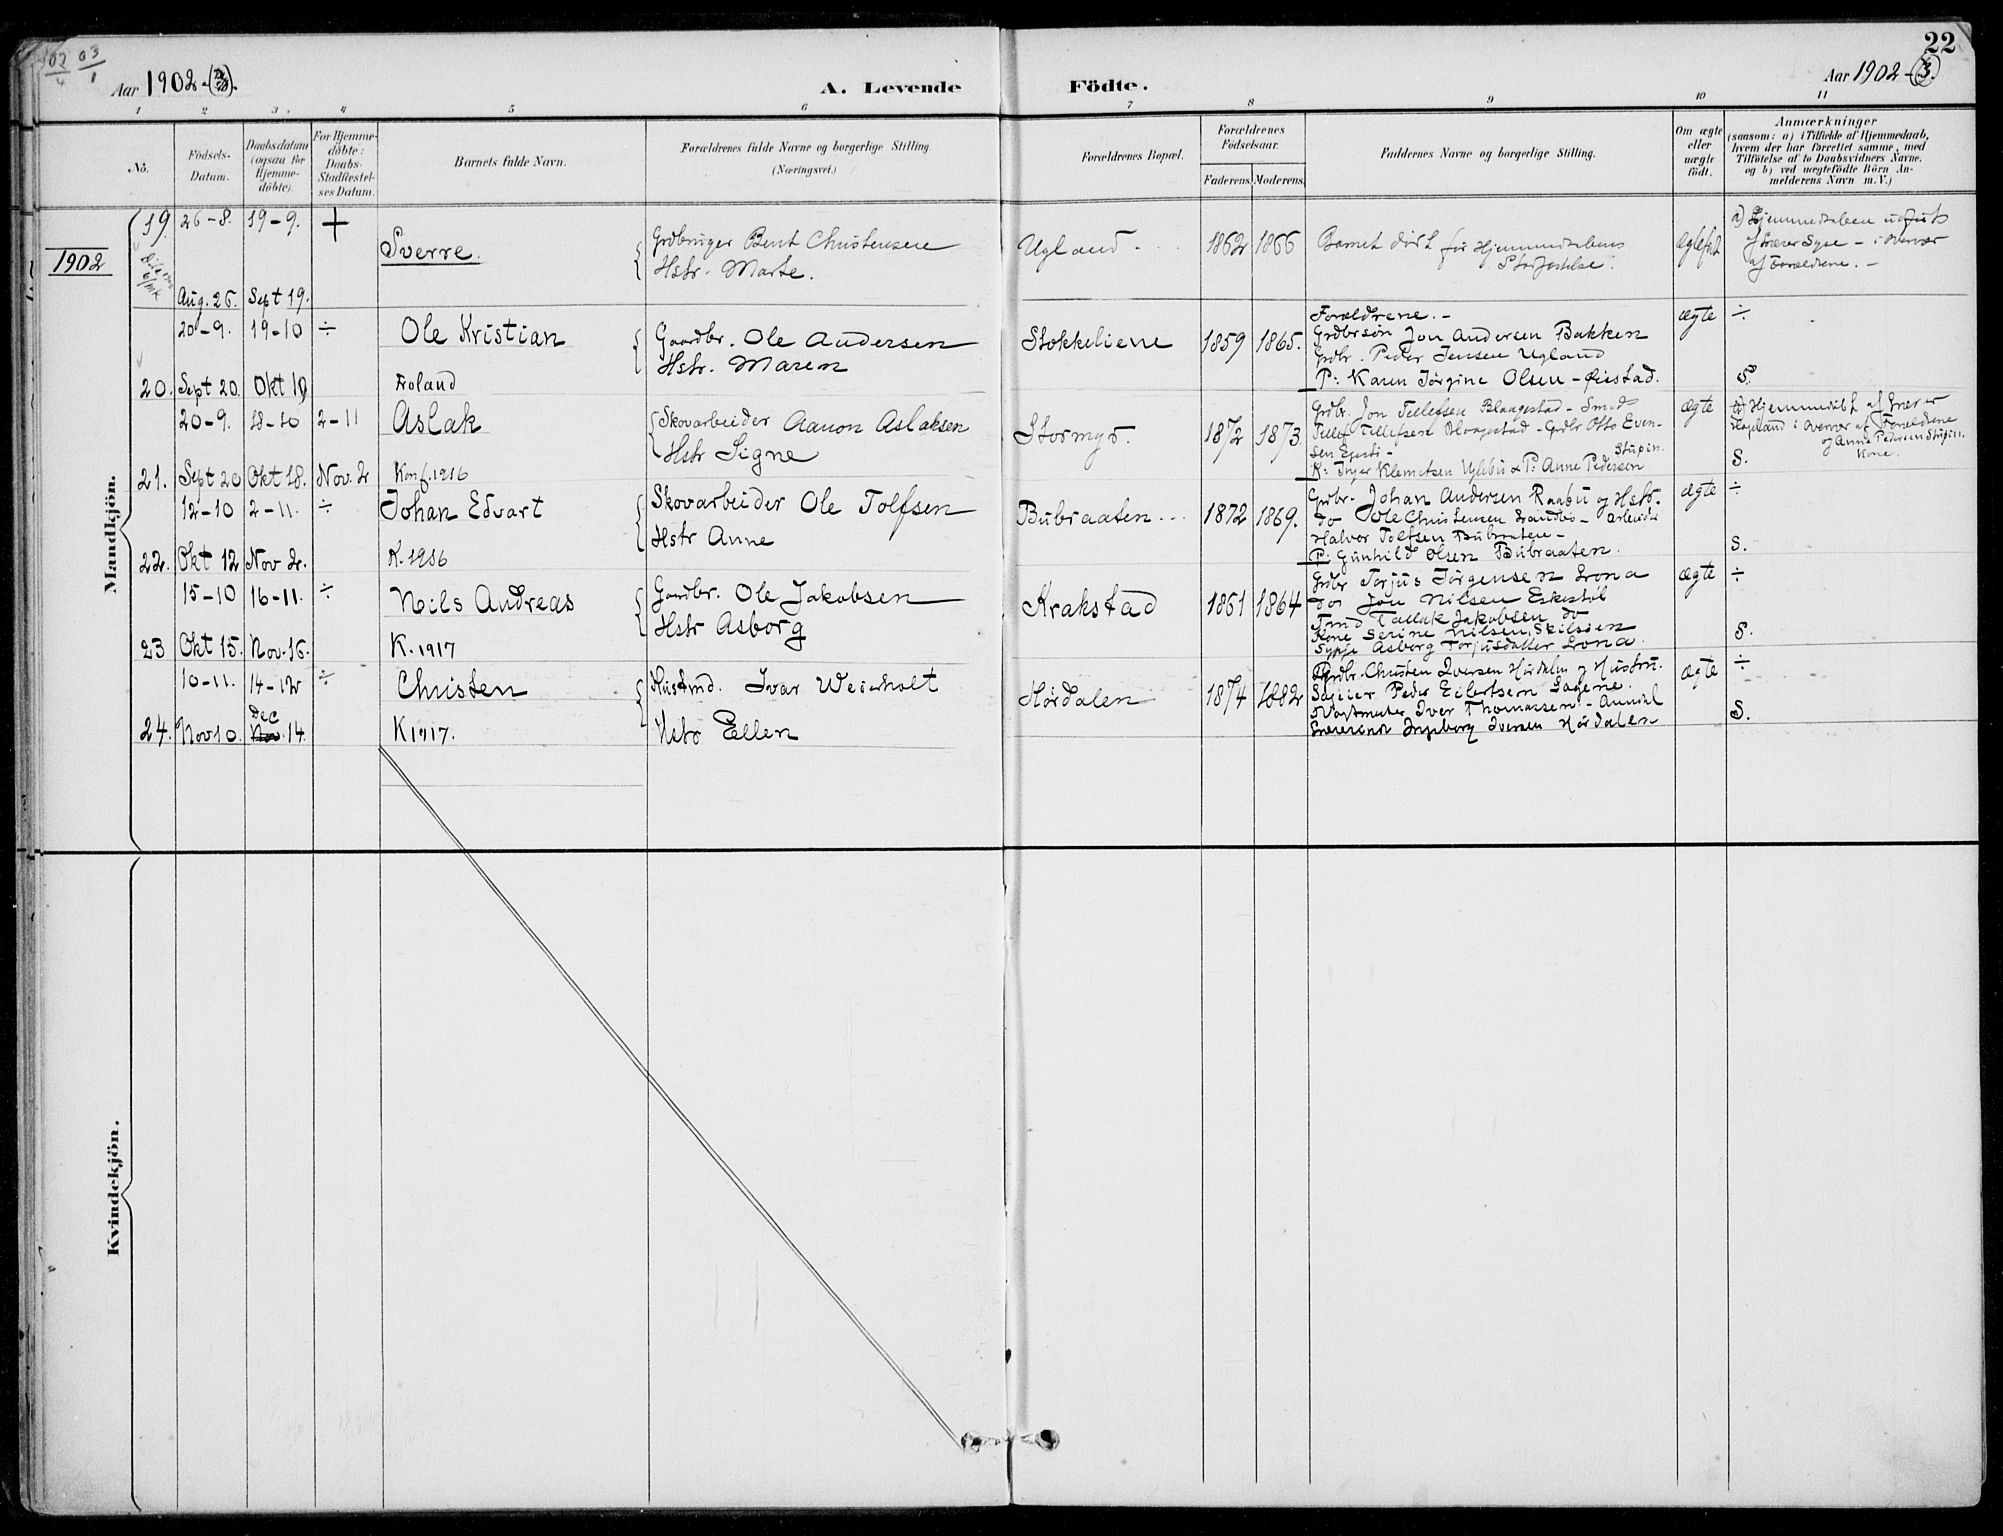 02/4 03/1
22
Aar 1902
A. Levende Födte.
Aar 1902 - 3.
1 2 3. 4 5 6 7 8 9 10 11
No.
Födsels-
Datum.
Daabsdatum
(ogsaa for
Hjemme-
döbte).
For Hjemme-
döbte:
Daabs-
Stadfæstel-
ses Datum.
Barnets fulde Navn.
Forældrenes fulde Navne og borgerlige Stilling
(Næringsvei.)
Forældrenes Bopæl.
Forældrenes
Födselsaar.
Faderens. Moderens.
Faddernes Navne og borgerlige Stilling.
Om ægte
eller
uægte
födt.
Anmærkninger
(saasom: a) i Tilfælde af Hjemmedaab,
hvem der har forrettet samme, med
Tilföielse af to Daabsvidners Navne.
og b) ved uægtefödte Börn An-
melderens Navn m. V.)
1902
Mandkjön.
19. 26-8. 19-9. +
Aug. 26. Sept 19.
Sverre.
Grdbruger Bent Christensen
Hstr. Marte.
Ugland
1862 1866
Barnet död før Hjemmedaabens
Stadfæstelse.
Ægtefød
a) Hjemmedaaben udført
af Lærer Syse - i Overvær
af Forældrene. -
20-9. 19-10 ÷
20. Sept 20. Okt 19
Ole Kristian
Froland
Gaardbr. Ole Andersen
Hstr. Maren
Stokkeliene
1859 1865.
Forældrene. -
Grdbrsøn Jon Andersen Bakken
Grdbr. Peder Jensen Ugland
P: Karen Jørgine Olsen - Øiestad.
ægte ÷
S.
20-9. 18-10 2-11
21. Sept 20 Okt 18. Nov. 2
Aslak
Konf. 1916
Skovarbeider Aanon Aslaksen
Hstr Signe
Stormyr.
1872 1873
Grdbr. Jon Tellefsen Blaagestad - Smed
Tellef Tellefsen Blaagestad - Grdbr Otto Even-
sen
Stupin.
K: Inger Klemetsen Uglebu & P: Anne Pedersen
ægte
a) Hjemmedøbt af Lærer
Hageland i Overvær af Forældrene
og Anne Pedersen Stupin.
Kone.
S.
12-10 2-11. ÷
22. Okt 12 Nov 2.
Johan Edvart
K. 1916
Skovarbeider Ole Tolfsen
Hstr Anne
Bubraaten
1872 1869.
Grdbr. Johan Andersen Raabu og Hstr.
do Ole Christensen - Arbeider
Halvor Tolfsen Bubraaten -
P: Gunhild Olsen Bubraaten.
ægte ÷
S.
15-10 16-11. ÷
23 Okt 15. Nov. 16.
Nils Andreas
K. 1917
Gaardbr. Ole Jakobsen
Hstr Asborg
Krakstad
1861 1864
Grdbr Torjus Jørgensen Lona
do Jon Nilsen Eskestøl
Tømd Tallak Jakobsen do
Kone Serine Nilsen, Skilsøien
Sypje Asborg Torjusdatter Lona.
ægte ÷
S.
10-11. 14-12 ÷
24. Nov 10. Nov. Dec 14.
Christen
K 1917.
Husmd. Ivar Weierholt
Hstr Ellen
Hørdalen
1874 1882
Grdbr. Christen Iversen Hørdalen og Hustru.
Sagcier Peder Eilertsen Sagene.
Iver Thomassen - Arendal
Ingeborg Iversen Hørdalen
ægte ÷
S.
Kvindekjön.